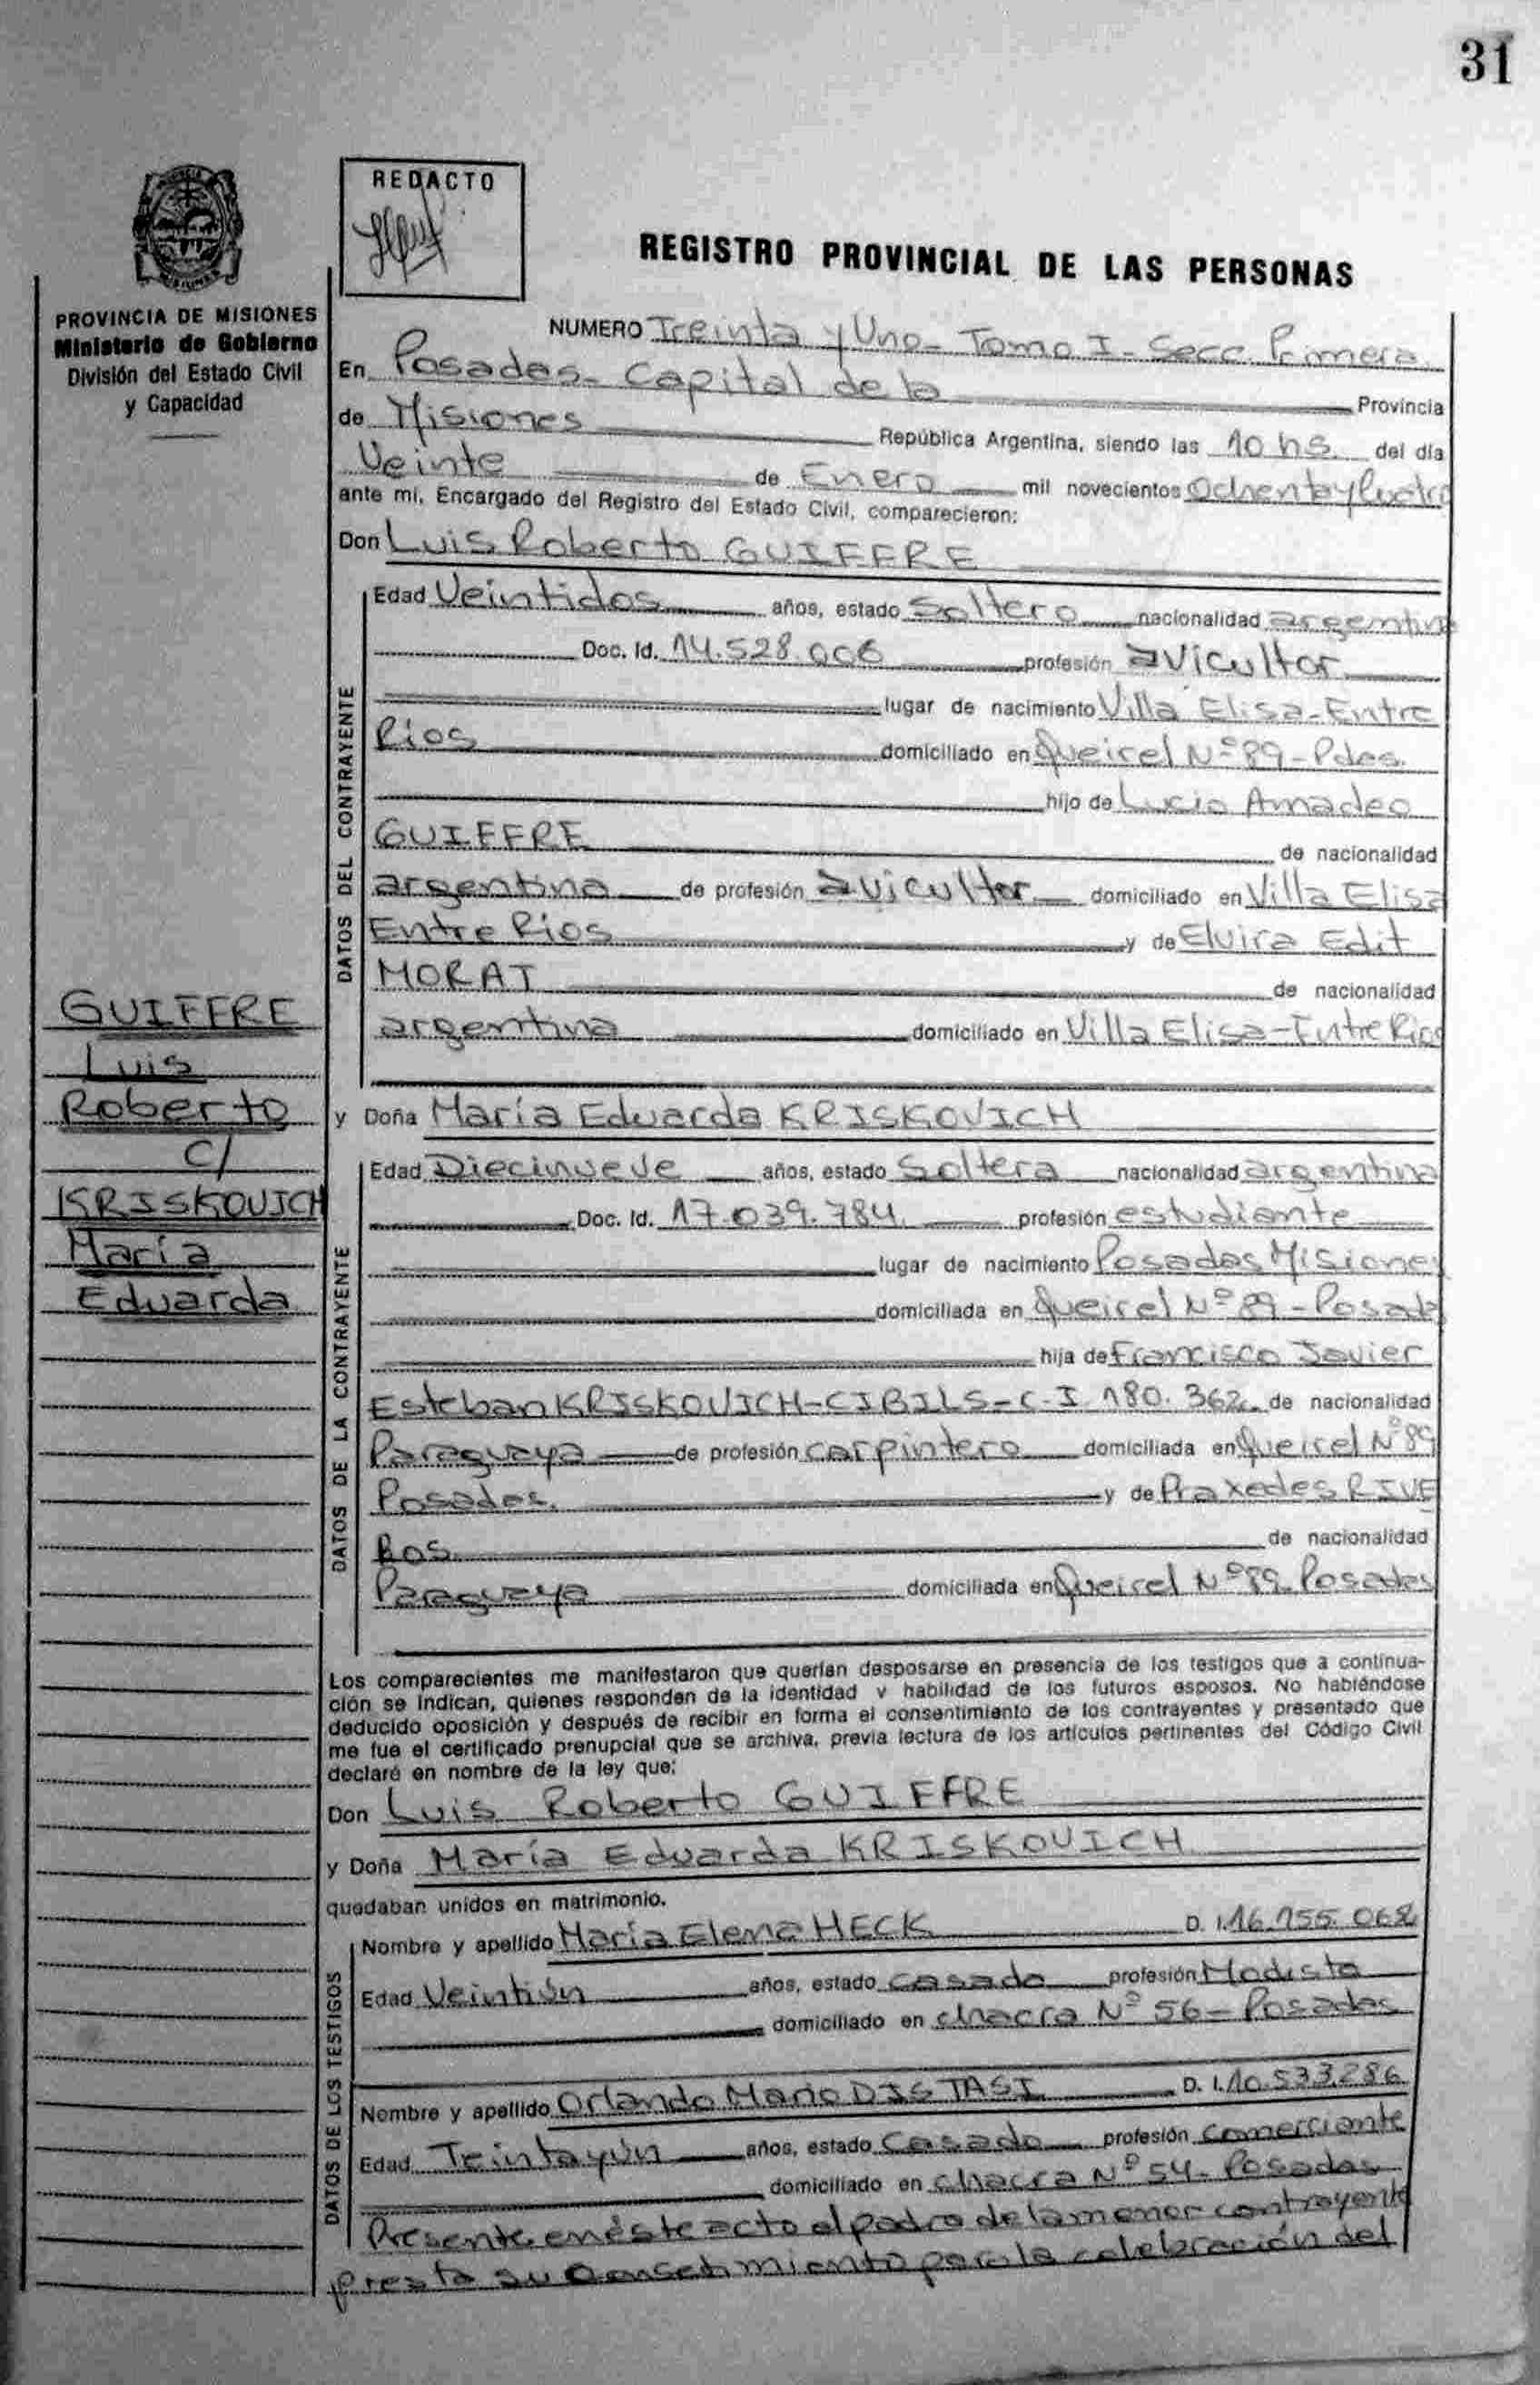 31
REDACTO
REGISTRO PROVINCIAL DE LAS PERSONAS
PROVINCIA DE MISIONES
Ministerio de Gobierno
División del Estado Civil
y Capacidad
NUMERO Treinta y Uno - Tomo I - Secc. Primera
En Posadas - Capital de la Provincia
de Misiones República Argentina, siendo las 10 hs. del día
Veinte de Enero mil novecientos Ochenta y Cuatro
ante mi, Encargado del Registro del Estado Civil, comparecieron:
Don Luis Roberto GUIFFRE
DATOS DEL CONTRAYENTE
Edad Veintidos años, estado Soltero nacionalidad argentina
Doc. Id. 14.528.006 profesión avicultor
lugar de nacimiento Villa Elisa - Entre
Rios domiciliado en Queirel Nº 89 - Pdas.
hijo de Lucio Amadeo
GUIFFRE de nacionalidad
argentina de profesión avicultor domiciliado en Villa Elisa
Entre Rios y de Elvira Edit
MORAT de nacionalidad
argentina domiciliado en Villa Elisa - Entre Rios
GUIFFRE
Luis
Roberto
C/
KRISKOVICH
María
Eduarda
y Doña María Eduarda KRISKOVICH
DATOS DE LA CONTRAYENTE
Edad Diecinueve años, estado Soltera nacionalidad argentina
Doc. Id. 17.039.784 profesión estudiante
lugar de nacimiento Posadas Misiones
domiciliada en Queirel Nº 89 - Posadas
hija de Francisco Javier
Esteban KRISKOVICH - CIBILS - C.I. 180.362 de nacionalidad
Paraguaya de profesión carpintero domiciliada en Queirel Nº 89
Posadas. y de Praxedes RIVE
ROS. de nacionalidad
Paraguaya domiciliada en Queirel Nº 89. Posadas
Los comparecientes me manifestaron que querían desposarse en presencia de los testigos que a continua-
ción se indican, quienes responden de la identidad y habilidad de los futuros esposos. No habiéndose
deducido oposición y después de recibir en forma el consentimiento de los contrayentes y presentado que
me fue el certificado prenupcial que se archiva, previa lectura de los artículos pertinentes del Código Civil
declaré en nombre de la ley que:
Don Luis Roberto GUIFFRE
y Doña María Eduarda KRISKOVICH
quedaban unidos en matrimonio.
DATOS DE LOS TESTIGOS
Nombre y apellido María Elena HECK D. I. 16.155.062
Edad Veintiún años, estado casada profesión Modista
domiciliado en chacra Nº 56 - Posadas
Nombre y apellido Orlando Mario DISTASI D. I. 10.533.286
Edad Teintayún años, estado Casado profesión Comerciante
domiciliado en chacra Nº 54 - Posadas
Presente en éste acto el padre de la menor contrayente
presta su consetimiento para la celebración del